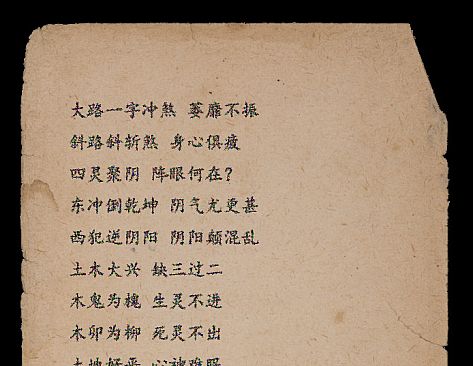 大路一字冲煞 萎靡不振
斜路斜斩煞 身心俱疲
四灵聚阴 阵眼何在？
东冲倒乾坤 阴气尤更甚
西犯逆阴阳 阴阳颠混乱
土木大兴 缺三过二
木鬼为槐 生灵不进
木卯为柳 死灵不出